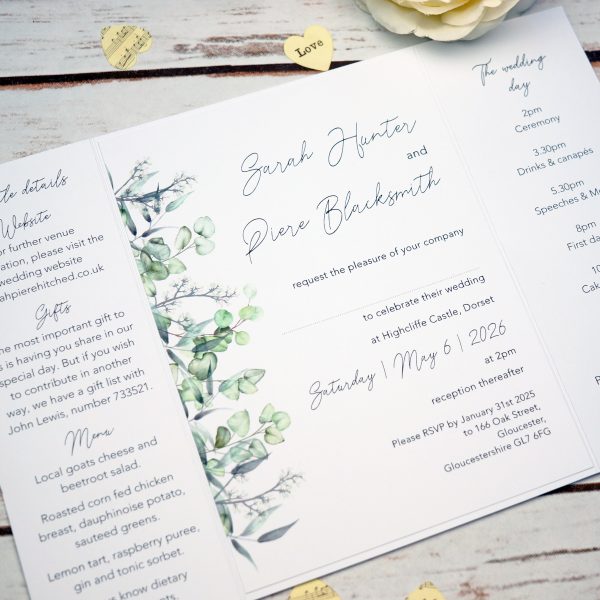 Love
details
Website
further venue
please visit the
wedding website
Gifts
most important gift to
is having you share in our
special day. But if you wish
to contribute in another
way, we have a gift list with
John Lewis, number 733521.
Menu
Local goats cheese and
beetroot salad.
Roasted corn fed chicken
breast, dauphinoise potato,
sauteed greens.
Lemon tart, raspberry puree,
gin and tonic sorbet.
know dietary
Sarah Hunter
and
Piere Blacksmith
request the pleasure of your company
to celebrate their wedding
at Highcliffe Castle, Dorset
Saturday | May 6 | 2026
at 2pm
reception thereafter
Please RSVP by January 31st 2025
to 166 Oak Street,
Gloucester,
Gloucestershire GL7 6FG
The wedding
day
2pm
Ceremony
3.30pm
Drinks & canapés
5.30pm
Speeches &
8pm
First